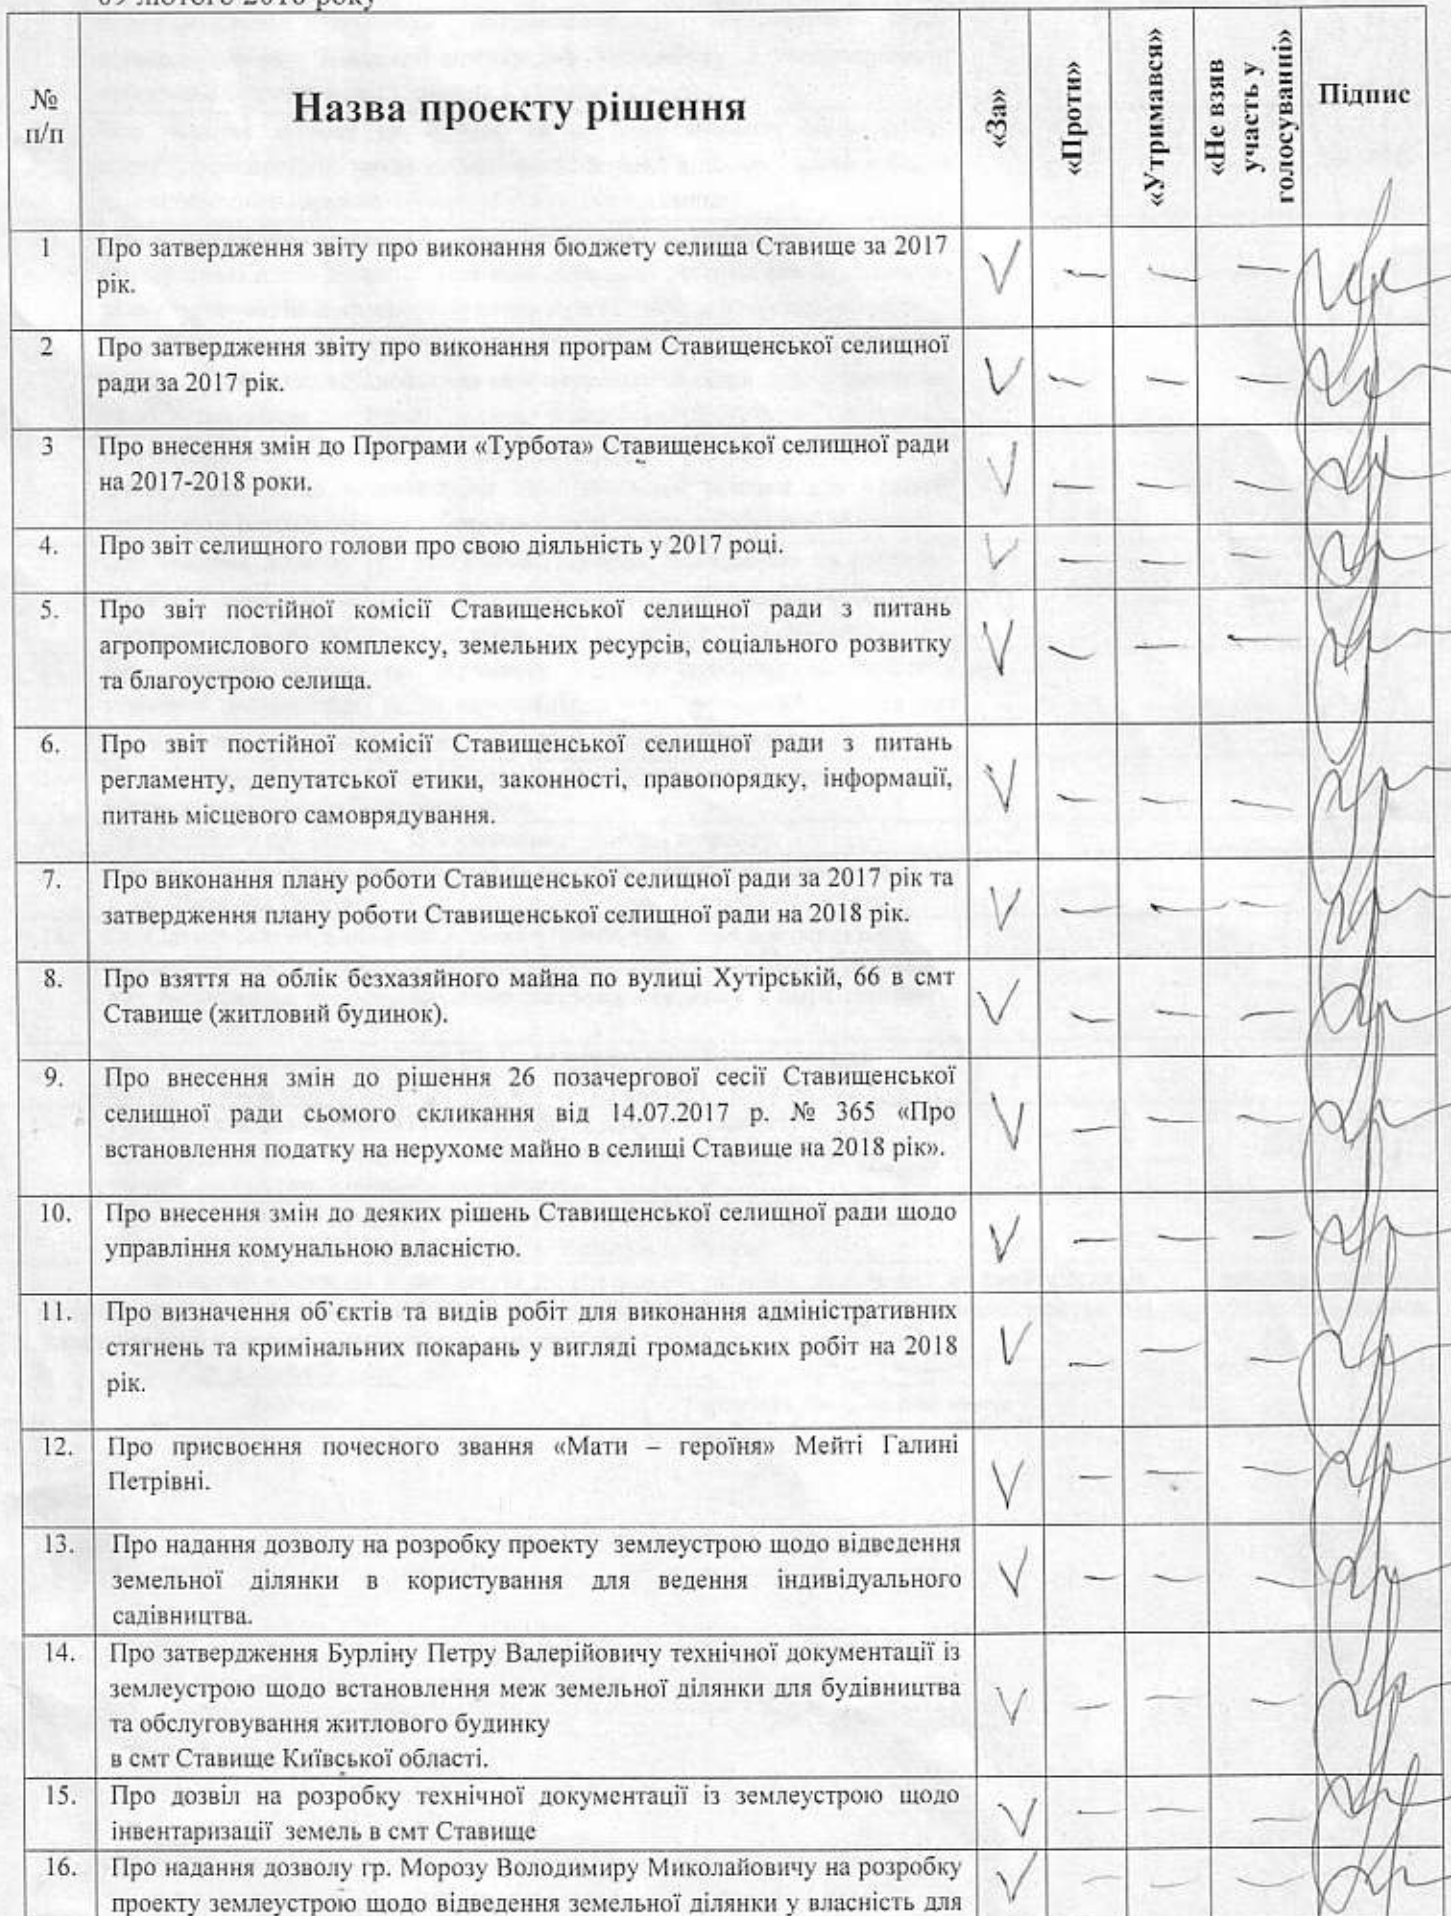 №
п/п
Назва проекту рішення
«За»
«Проти»
«Утримався»
«Не взяв
участь у
голосуванні»
Підпис
1
Про затвердження звіту про виконання бюджету селища Ставище за 2017
рік.
2
Про затвердження звіту про виконання програм Ставищенської селищної
ради за 2017 рік.
3
Про внесення змін до Програми «Турбота» Ставищенської селищної ради
на 2017-2018 роки.
4.
Про звіт селищного голови про свою діяльність у 2017 році.
5.
Про звіт постійної комісії Ставищенської селищної ради з питань
агропромислового комплексу, земельних ресурсів, соціального розвитку
та благоустрою селища.
6.
Про звіт постійної комісії Ставищенської селищної ради з питань
регламенту, депутатської етики, законності, правопорядку, інформації,
питань місцевого самоврядування.
7.
Про виконання плану роботи Ставищенської селищної ради за 2017 рік та
затвердження плану роботи Ставищенської селищної ради на 2018 рік.
8.
Про взяття на облік безхазяйного майна по вулиці Хутірській, 66 в смт
Ставище (житловий будинок).
9.
Про внесення змін до рішення 26 позачергової сесії Ставищенської
селищної ради сьомого скликання від 14.07.2017 р. № 365 «Про
встановлення податку на нерухоме майно в селищі Ставище на 2018 рік».
10.
Про внесення змін до деяких рішень Ставищенської селищної ради щодо
управління комунальною власністю.
11.
Про визначення об`єктів та видів робіт для виконання адміністративних
стягнень та кримінальних покарань у вигляді громадських робіт на 2018
рік.
12.
Про присвоєння почесного звання «Мати – героїня» Мейті Галині
Петрівні.
13.
Про надання дозволу на розробку проекту землеустрою щодо відведення
земельної ділянки в користування для ведення індивідуального
садівництва.
14.
Про затвердження Бурліну Петру Валерійовичу технічної документації із
землеустрою щодо встановлення меж земельної ділянки для будівництва
та обслуговування житлового будинку
в смт Ставище Київської області.
15.
Про дозвіл на розробку технічної документації із землеустрою щодо
інвентаризації земель в смт Ставище
16.
Про надання дозволу гр. Морозу Володимиру Миколайовичу на розробку
проекту землеустрою щодо відведення земельної ділянки у власність для